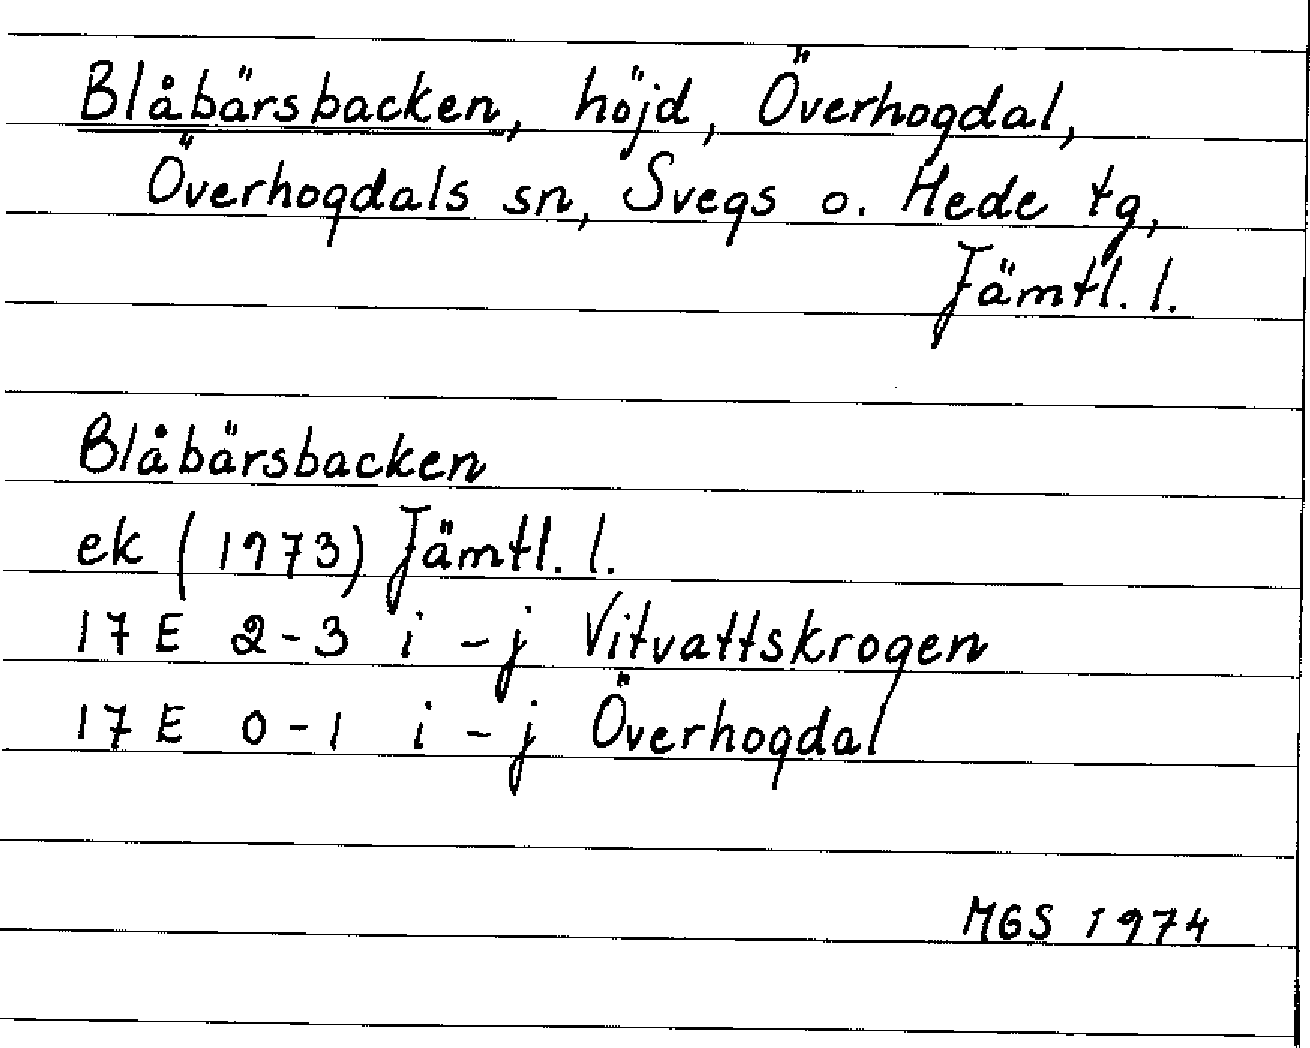 Blåbärsbacken, höjd, Överhogdal,
Överhogdals sn, Svegs o. Hede tg,
Jämtl. l.
Blåbärsbacken
ek (1973) Jämtl. l.
17 E 2-3 i-j Vitvattskrogen
17 E 0-1 i-j Överhogdal
MGS 1974